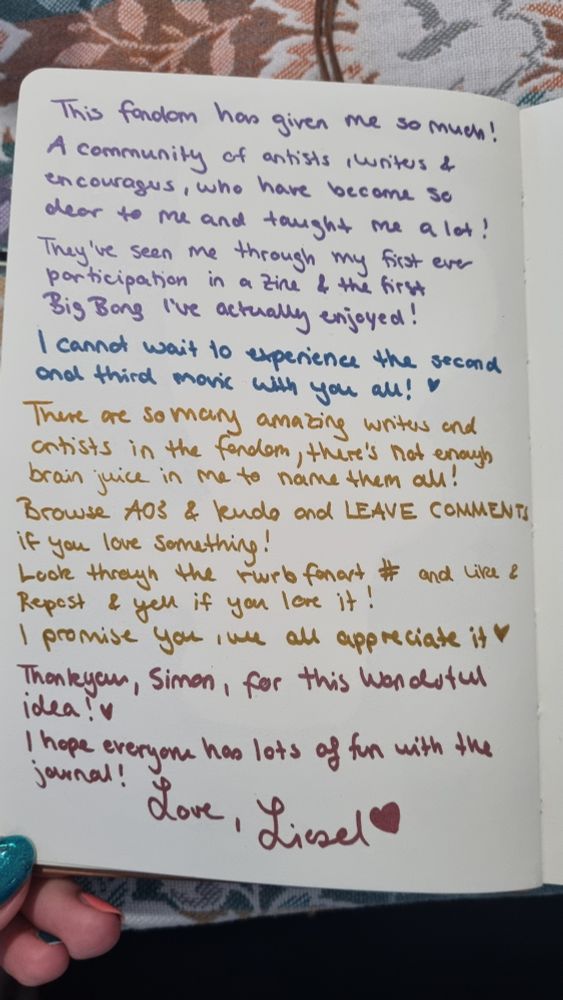 This fandom has given me so much!
A community of artists, writers &
encouragers, who have become so
dear to me and taught me a lot!
They've seen me through my first ever
participation in a Zine & the first
Big Bang I've actually enjoyed!
I cannot wait to experience the second
and third movie with you all! ♥
There are so many amazing writers and
artists in the fandom, there's not enough
brain juice in me to name them all!
Browse AO3 & kudo and LEAVE COMMENTS
if you love something!
Look through the rwrb fanart # and like &
Repost & yell if you love it!
I promise you, we all appreciate it ♥
Thank you, Simon, for this wonderful
idea! ♥
I hope everyone has lots of fun with the
journal!
Love, Liesel ♥